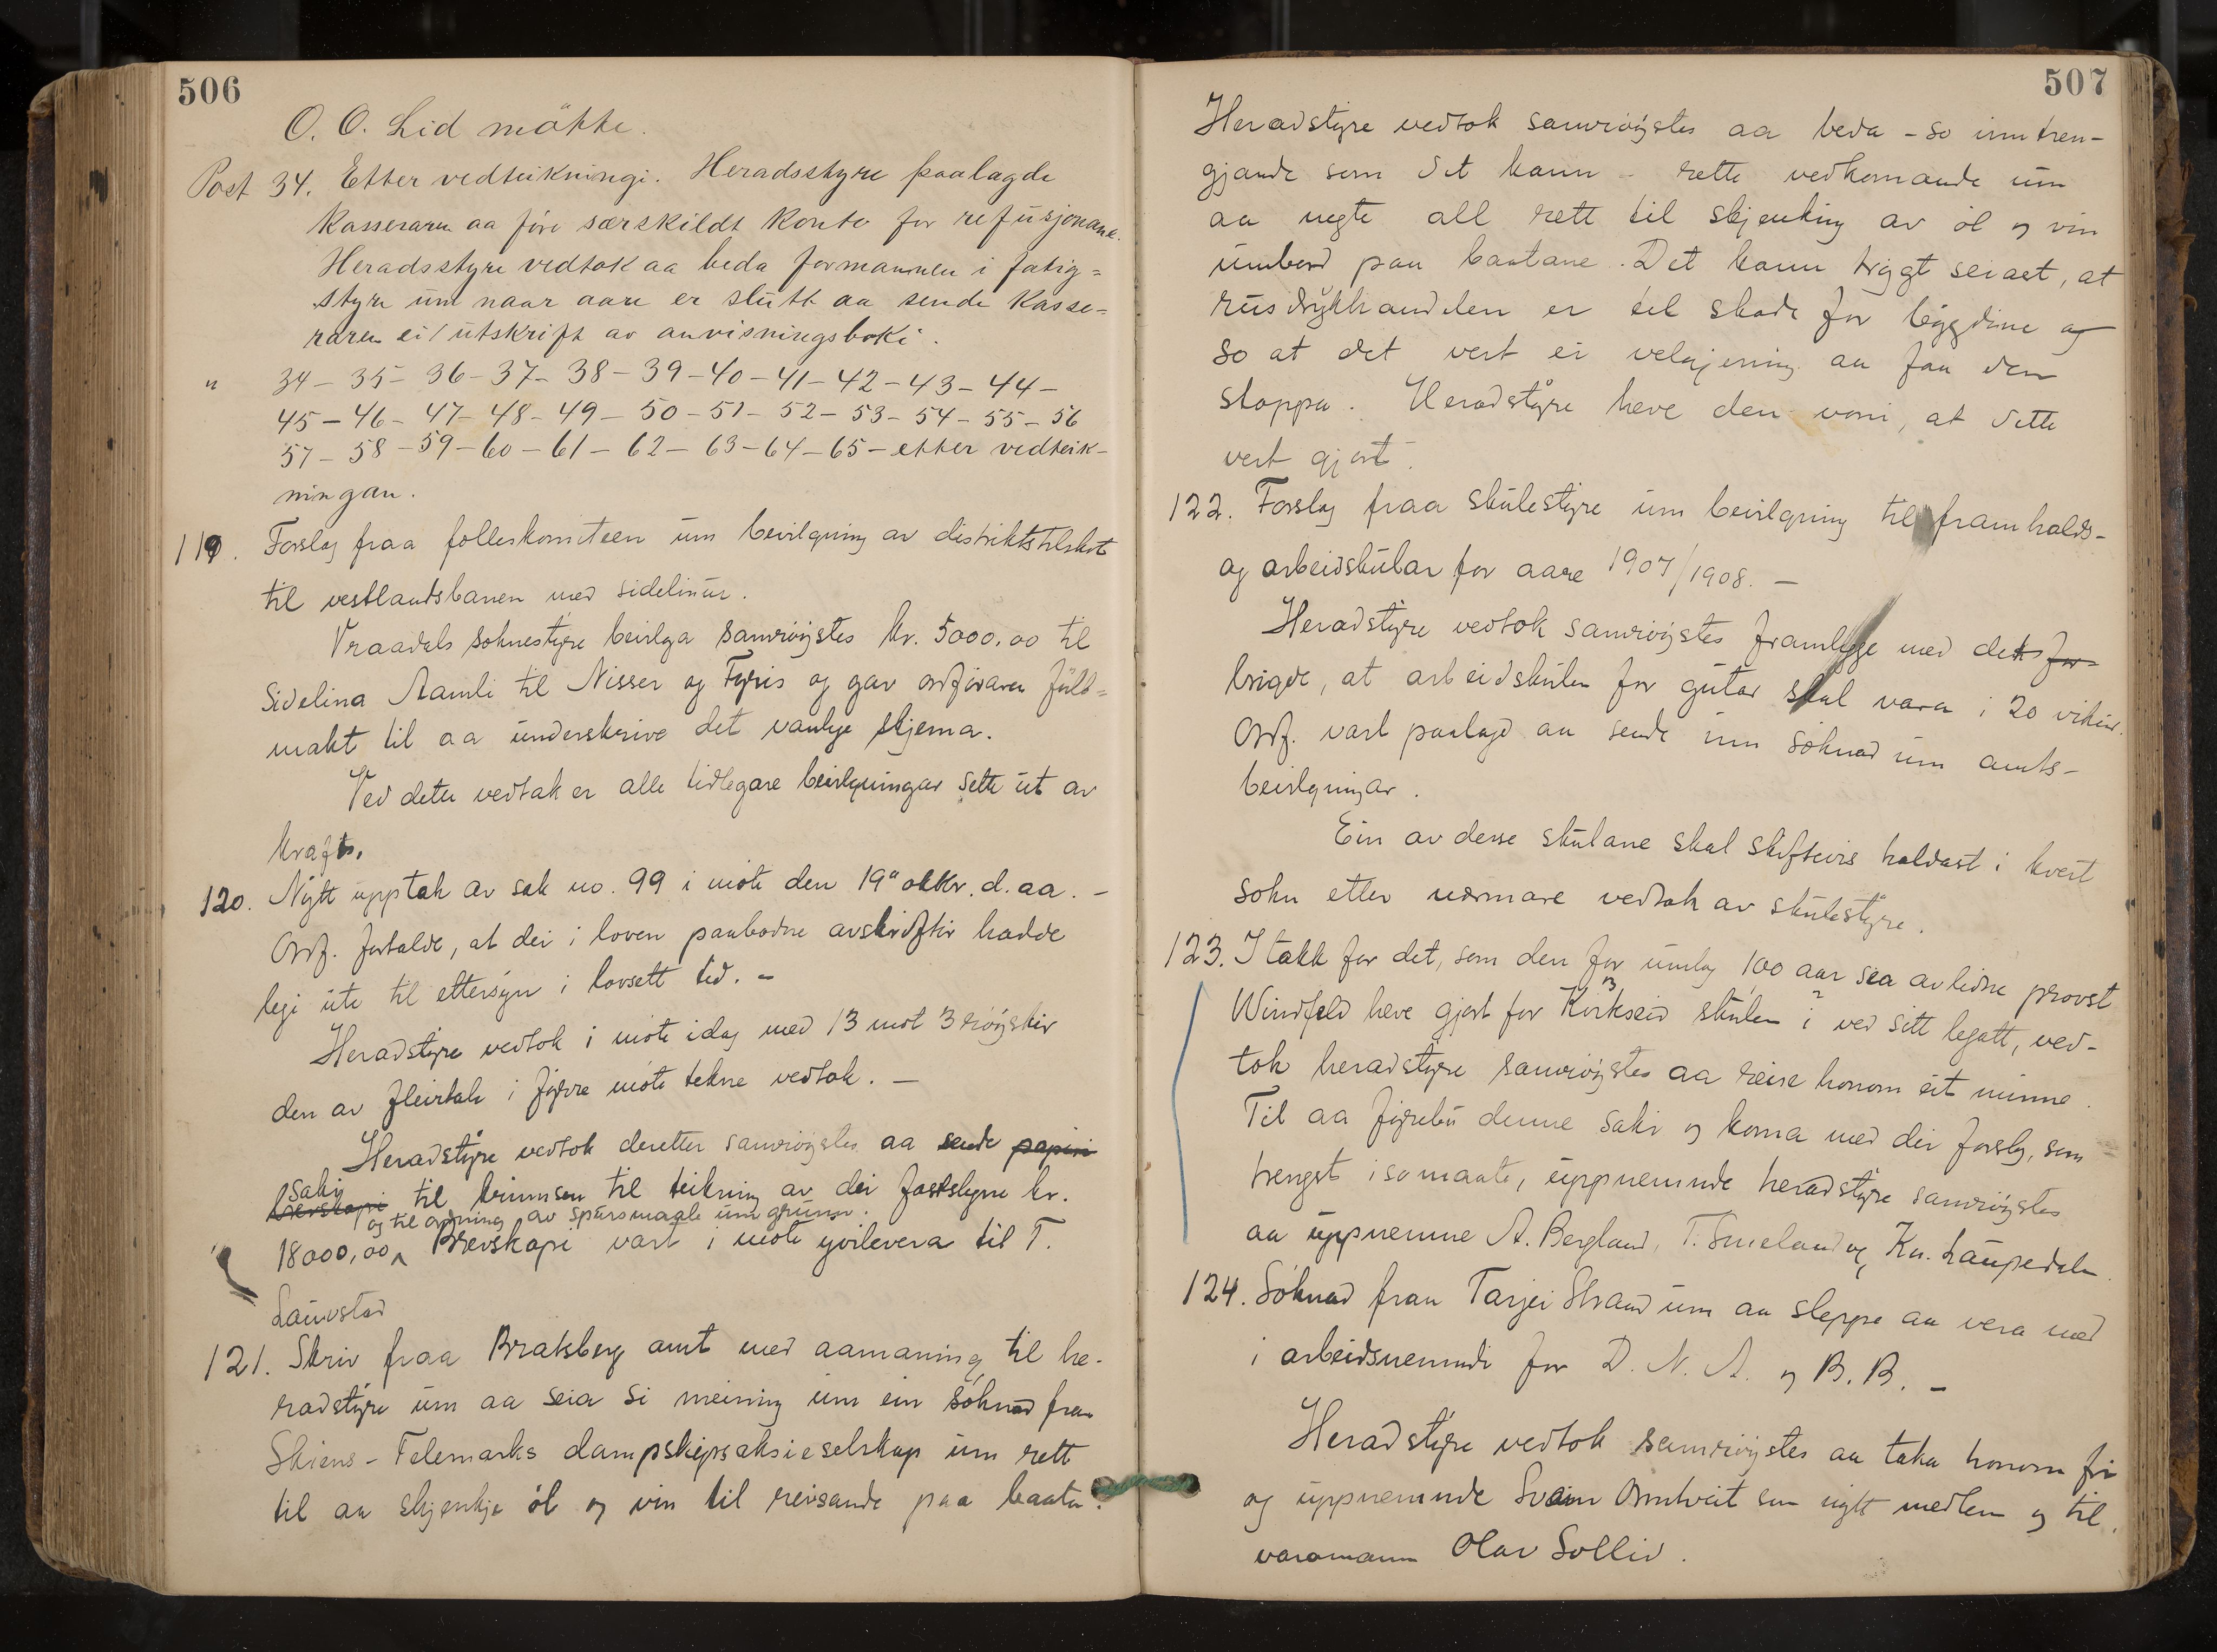 506
O. O. Lid mötte.
Post 34. Etter vedteikningi. Heradsstyre paalagde
Kasseraren aa före særskildt Konto for refusjonane.
Heradsstyre vedtok aa beda formannen i fatig=
styre um naar aare er slutt aa sende Kasse=
raren ei utskrift av anvisningsboki.
" 34 - 35 - 36 - 37 - 38 - 39 - 40 - 41 - 42 - 43 - 44 -
45 - 46 - 47 - 48 - 49 - 50 - 51 - 52 - 53 - 54 - 55 - 56
57 - 58 - 59 - 60 - 61 - 62 - 63 - 64 - 65 - etter vedteik-
ningan.
119. Forslag fraa felleskomiteen um bevilgning av distriktstilskot
til vestlandsbanen med sidelinur.
Vraadals soknestyre bevilga samröystes kr. 5000,00 til
Sidelina Aamli til Nisser og Fyris og gav ordföraren full=
makt til aa underskrive det vanlege skjema.
Ved dette vedtak er alle tidlegare bevilgningar sette ut av
kraft.
120. Nytt upptak av sak no. 99 i möte den 19" oktbr. d. aa. -
Ordf. fortalde, at dei i loven paabodne avskrifter hadde
legi ute til ettersyn i lovsett tid. -
Heradstyre vedtok i möte idag med 13 mot 3 röyster
den av fleirtale i fyrre möte tekne vedtak. -
Heradstyre vedtok deretter samröystes aa sende papiri
saki
brevskapi til krinnsen til teikning av dei fastslegne kr.
og til ordning av spursmaale um grunn.
18000,00 ^ Brevskapi vart i möte yvilevera til T.
Lauvstad
121. Skriv fraa Bratsberg amt med aamaning til he-
radstyre um aa seia si meining um ein söknad fraa
Skiens - Telemarks dampskipsaksieselskap um rett
til aa skjenkje öl og vin til reisande paa baata.
507
Heradstyre vedtok samröystes aa beda - so inntren-
gjande som det kann - rette vedkomande um
aa negte all rett til skjenking av öl og vin
umbord paa baatane. Det kann trygt seiast, at
rusdrykkhandelen er til skade for bygdine og
so at det vert ei velgjering aa faa den
stoppa. Heradstyre heve den voni, at dette
vert gjort.
122. Forslag fraa skulestyre um bevilgning til framhalds-
og arbeidskular for aare 1907/1908. -
Heradstyre vedtok samröystes framlegge med det for-
brigde, at arbeidskulen for gutar skal vara i 20 vikur.
Ordf. vart paalagd aa sende inn söknad um amts-
bevilgningar.
Ein av desse skulane skal skiftevis haldast i kvert
sokn etter nærmare vedtak av skulestyre.
123. I takk for det, som den for umlag 100 aar sea avlidne provst
Windfeld heve gjort for Kirkseid skulen i ved sitt legatt, ved-
tok heradstyre samröystes aa reise honom eit minne.
Til aa fyrebu denne saki og koma med dei forslag, som
trengst i so maate, uppnemnde heradstyre samröystes
aa uppnemne A. Bergland, T. Smeland og Kn. Laupedalen.
124. Söknad fraa Tarjei Strand um aa sleppe aa vera med
i arbeidsnemndi for D. N. A. og B. B. -
Heradstyre vedtok samröystes aa taka honom fri
og uppnemnde Svein Omtveit som nytt medlem og til
varamann Olav Sollid.